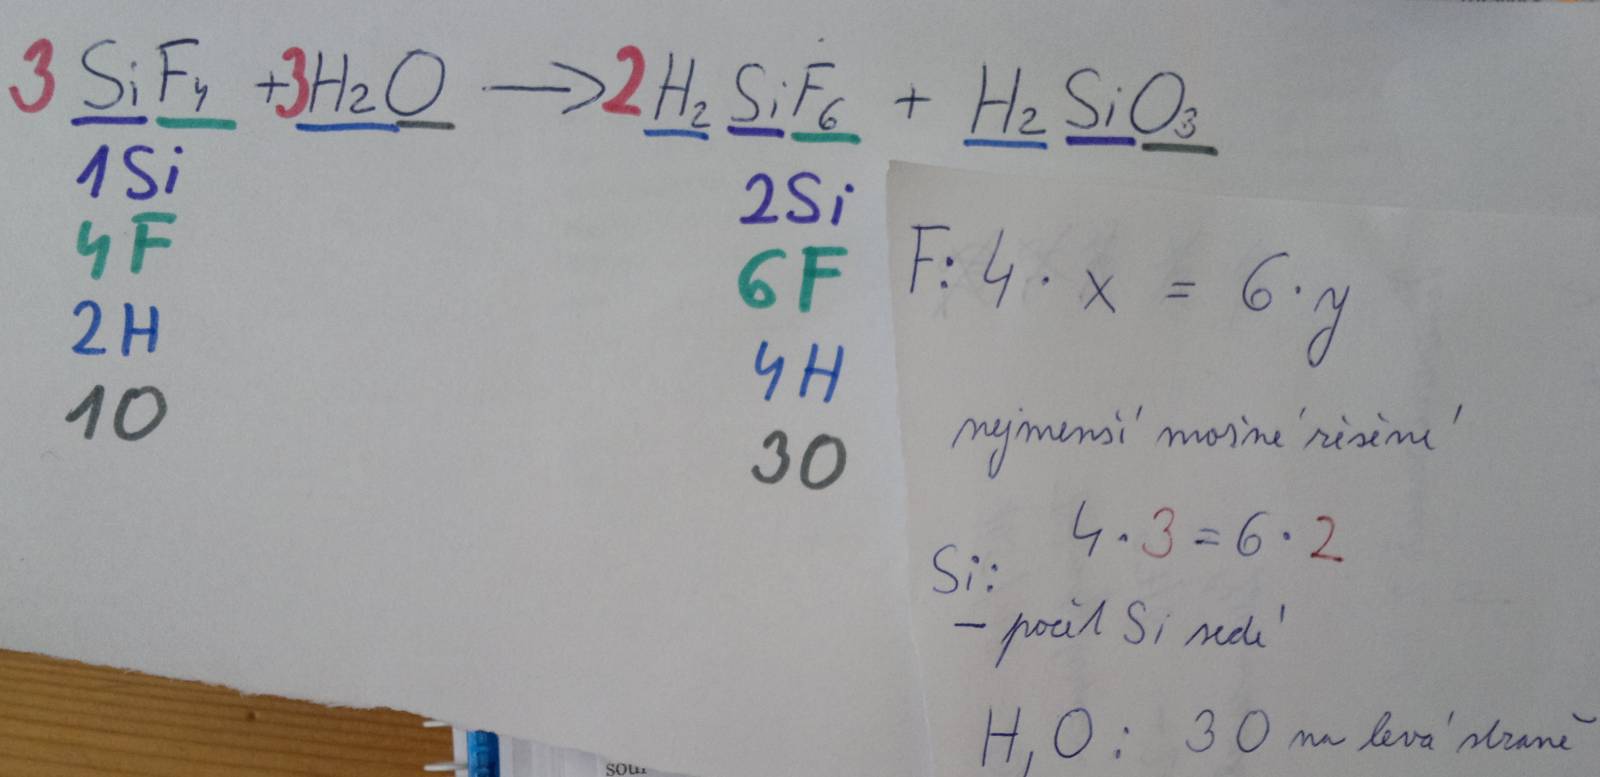 3 SiF4 + 3H2O → 2H2SiF6 + H2SiO3
1Si
4F
2H
1O
2Si
6F
4H
3O
F: 4 · x = 6 · y
nejmenší možné řešení
4 · 3 = 6 · 2
Si:
– počet Si sedí
H,O: 3O na levá straně